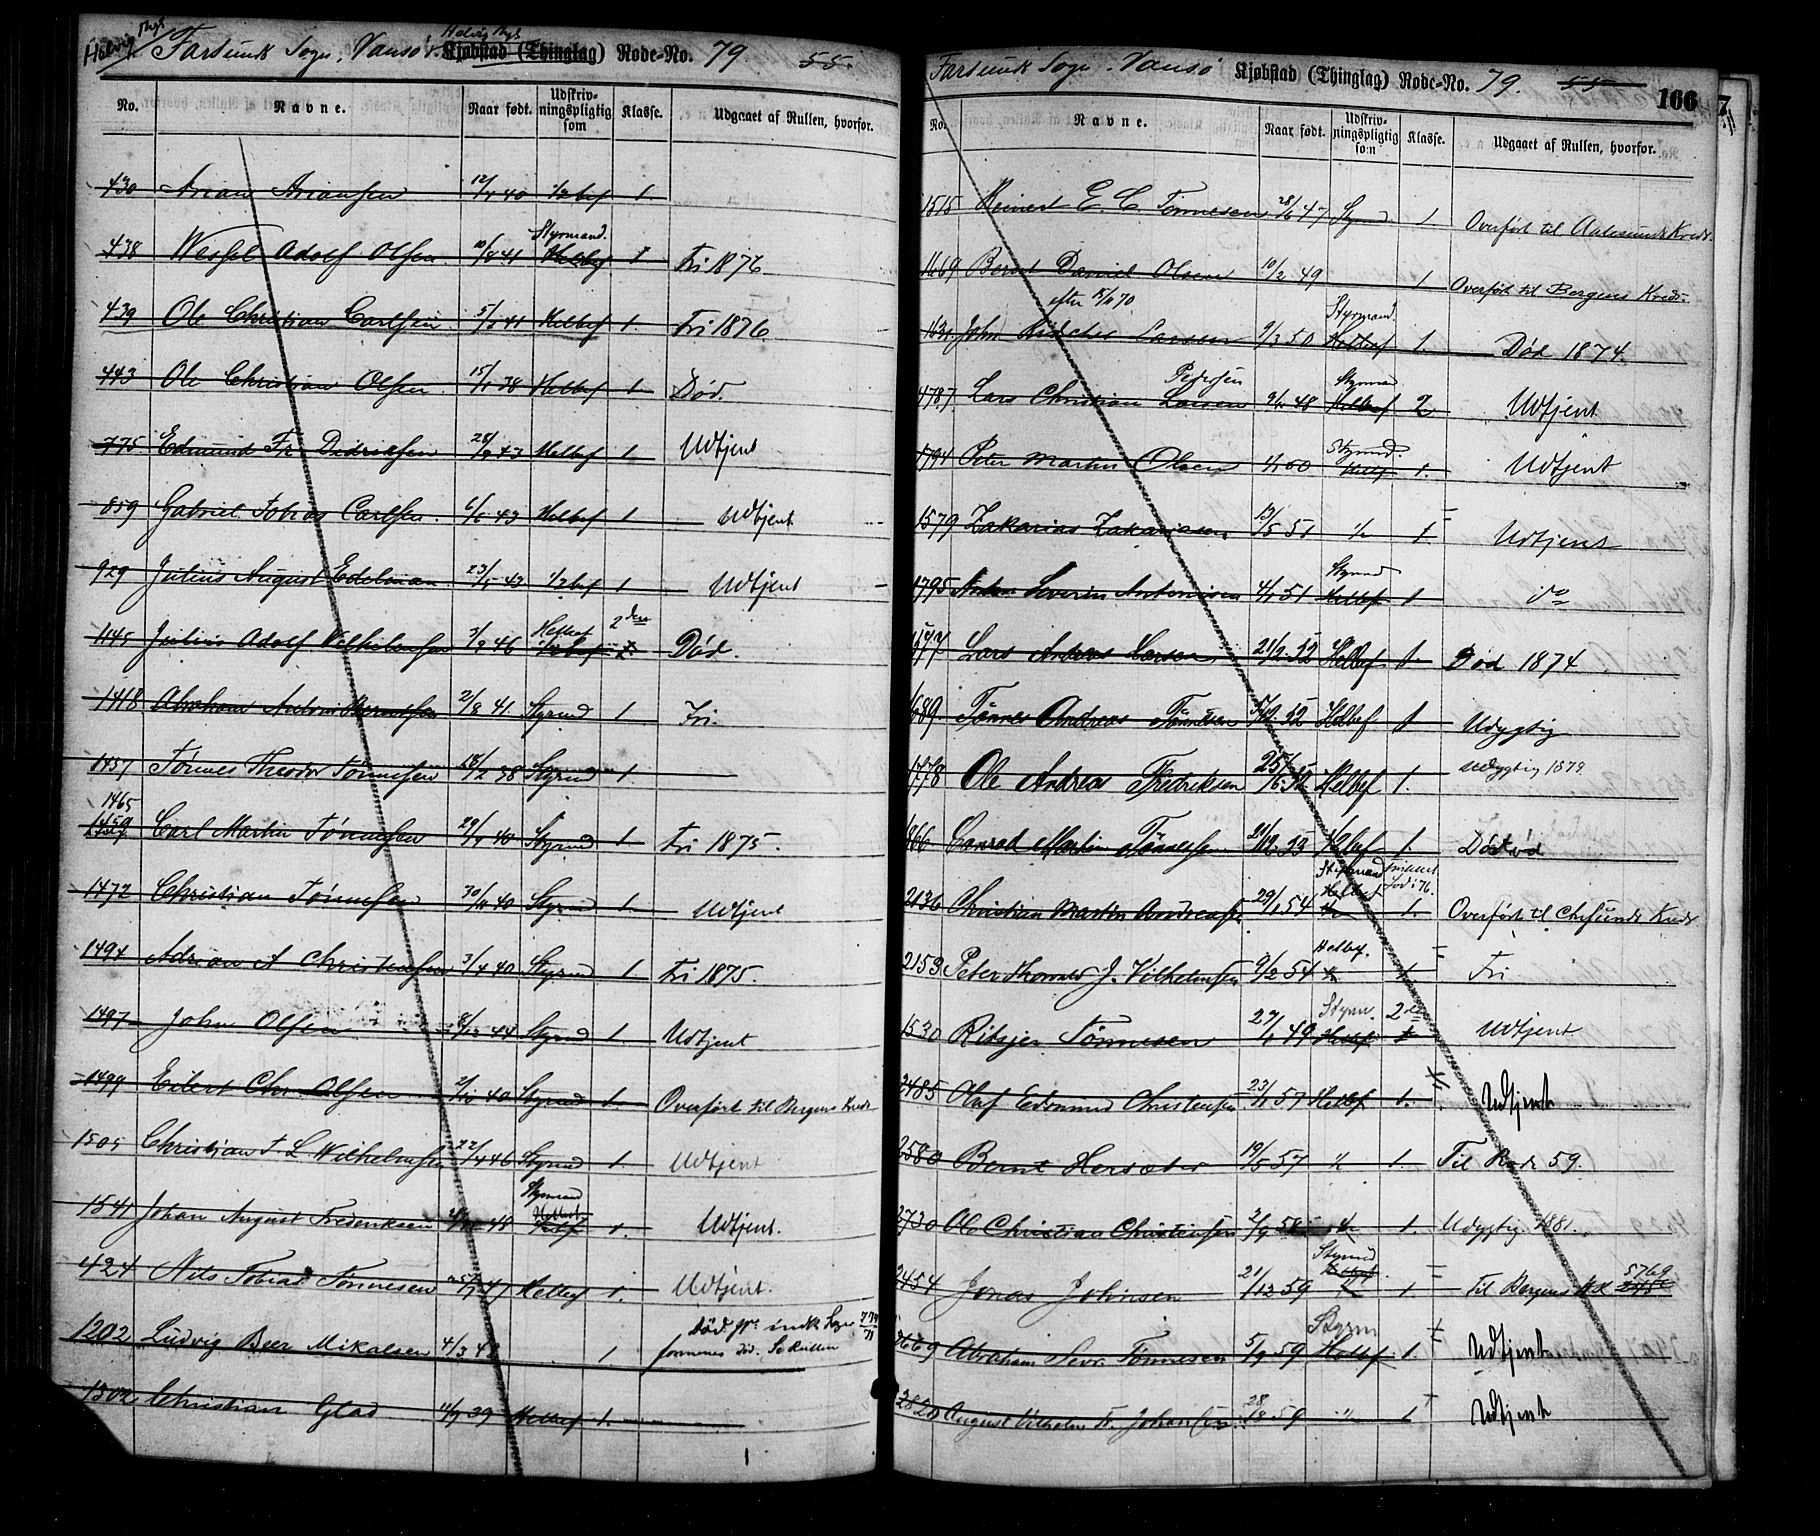 Helvig Thgs Farsund Sogn, Vansø Helvig Thgs Kjøbstad (Thinglag) Rode-No. 79 55.
No. Navne. Naar født. Udskrivningspligtig som Klasse. Udgaaet af Rullen, hvorfor.
430 Arian Ariansen 40 1/2 bef 1
438 Wessel Adolf Olsen 10/8 41 Styrmand. Helbef 1 Fri 1876
439 Ole Christian Carlsen 41 Helbef 1. Fri 1876.
443 Ole Christian Olsen 15/1 38 Helbef 1 Død.
775 Edmund Fr. Didriksen 43 Helbef 1 Udtjent
859 Gabriel Tobias Carlsen 6/6 43 Helbef 1 Udtjent
929 Julius August Edelman 23/5 43 1/2 bef 1 Udtjent
1145 Julius Adolf Wilhelmsen 3/3 46 Helbef 2den Død.
1418 Abraham Anton Berntsen 2/8 41 Styrmd 1 Fri.
1437 Tønnes Theodor Tønnesen 18/2 38 Styrmd 1.
1465 1459 Carl Martin Tønnesen 40 Styrmd 1 Fri 1875.
1472 Christian Tønnesen 40 Styrmd 1. Udtjent
1494 Adrian A Christensen 3/4 40 Styrmd 1 Fri 1875.
1497 John Olsen 8/12 44 Styrmd 1 Udtjent
1499 Eilert Chr. Olsen 2/10 40 Styrmd 1. Overført til Bergens Kreds
1505 Christian F. L. Wilhelmsen 22/4 46 Styrmd 1. Udtjent
1541 Johan August Frederiksen 48 Styrmand Helbef 1. Udtjent.
424 Nils Tobias Tønnesen 25/7 47 Helbef 1. Udtjent.
1202 Ludvig Beer Mikalsen 4/3 48 1 Død
1502 Christian Glad 4/9 39 Helbef 1.
Farsund Sogn. Vansø Kjøbstad (Thinglag) Rode-No. 79. 55 166
No. Navne. Naar født. Udskrivningspligtig som Klasse. Udgaaet af Rullen, hvorfor.
1515 Reinert E. C. Tønnesen 28/6 47 Styrmd 1. Overført til Aalesunds Kreds.
1669 Bernt Daniel Olsen 10/2 49 1 Overført til Bergens Kreds.
efter 70
John Larsen 9/3 50 Styrmand. Helbef 1. Død 1874.
4787 Lars Christian Larsen Pedersen 48 Styrmd Helbef 2 Udtjent
1794 Peter Martin Olsen 50 Styrmd. 1. Udtjent
1579 Zakarias Zakariasen. 13/5 51 1. Udtjent
1795 Anton Severin Antonisen 51 Styrmd Helbef 1 do
1577 Lars Andreas Larsen 21/2 52 Helbef 1 Død 1874
1689. Tønnes Andreas Tønnesen 52 Helbef 1 Udygtig
1778 Ole Andreas Fredriksen 25/6 52 Helbef 1. Udygtig 1879.
1866 Conrad Martin Tønnesen 53 Helbef 1 Død
2136 Christian Martin Andreasen 29/1 54 Styrmand Helbef 1. Overført til Chrsunds Kreds
2153 Peter Thorvald J. Vilhelmsen 9/2 54 Helbef. 1 Fri
1530 Ritsjer Tønnesen 49 Styrm. Helbef 2den Udtjent
2485 Oluf Edmund Christensen 23/1 57 Helbef 1. Udtjent
2580 Bernt Hersæter 19/5 57 1. Til Rode 59.
2730 Ole Christian Christensen 2/9 58 1. Udygtig 1881.
2454 Jonas Johnsen 21/12 59 Styrmd 1 Til Bergens 5769
2669 Abraham Sevr. Tønnesen 5/9 59 Styrm Helbef 1. Udtjent
2820 August Vilhelm Fr. Johansen 28/8 59 1 Udtjent